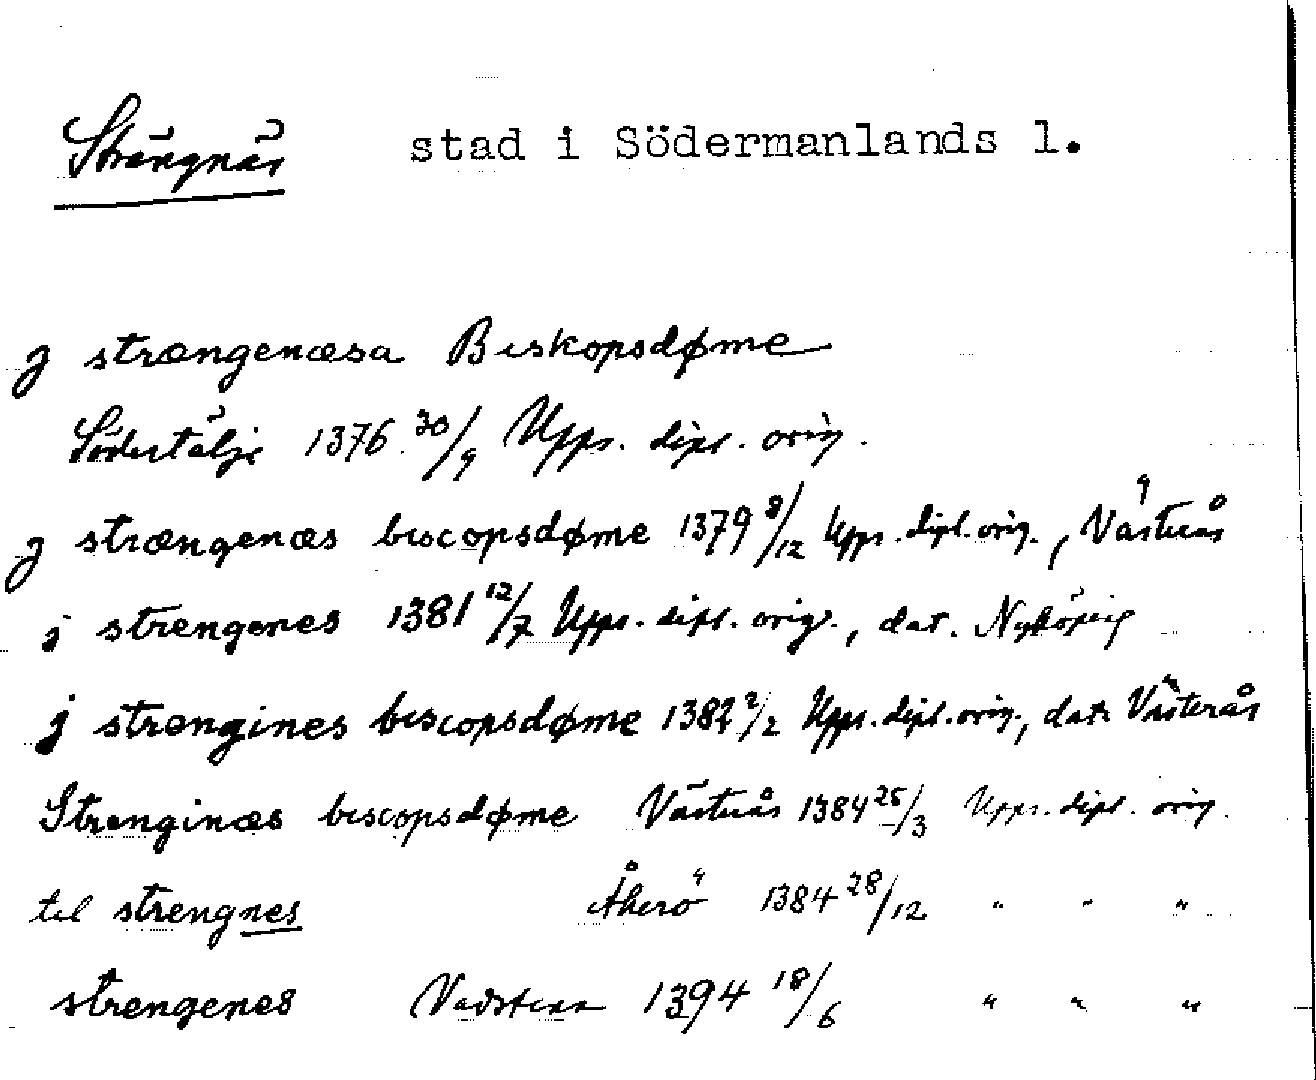 Strängnäs stad i Södermanlands l.
J strængenæsa Biskopsdøme
Södertälje 1376 30/9 Upps. dipl. orig.
J strængenæs biscopsdøme 1379 8/12 Upps. dipl. orig., Västerås
j strengenes 1381 12/7 Upps. dipl. orig., dat. Nyköping
j strængines biscopsdøme 1382 2/2 Upps. dipl. orig., dat. Västerås
Strenginæs biscopsdøme Västerås 1384 25/3 Upps. dipl. orig.
til strengnes Åkerö 1384 28/12 " " "
strengenes Vadstena 1394 18/6 " " "